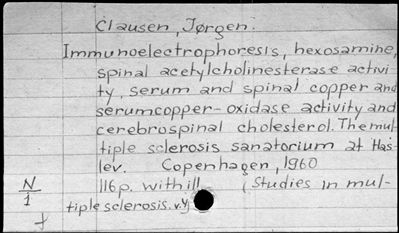 Clausen, Jørgen.
Immunoelectrophoresis, hexosamine,
spinal acetylcholinesterase activi
ty, serum and spinal copper and
serumcopper-oxidase activity and
cerebrospinal cholesterol. The mul-
tiple sclerosis sanatorium at Has-
lev. Copenhagen, 1960
N
1
116p. with ill (Studies in mul-
tiple sclerosis. v.